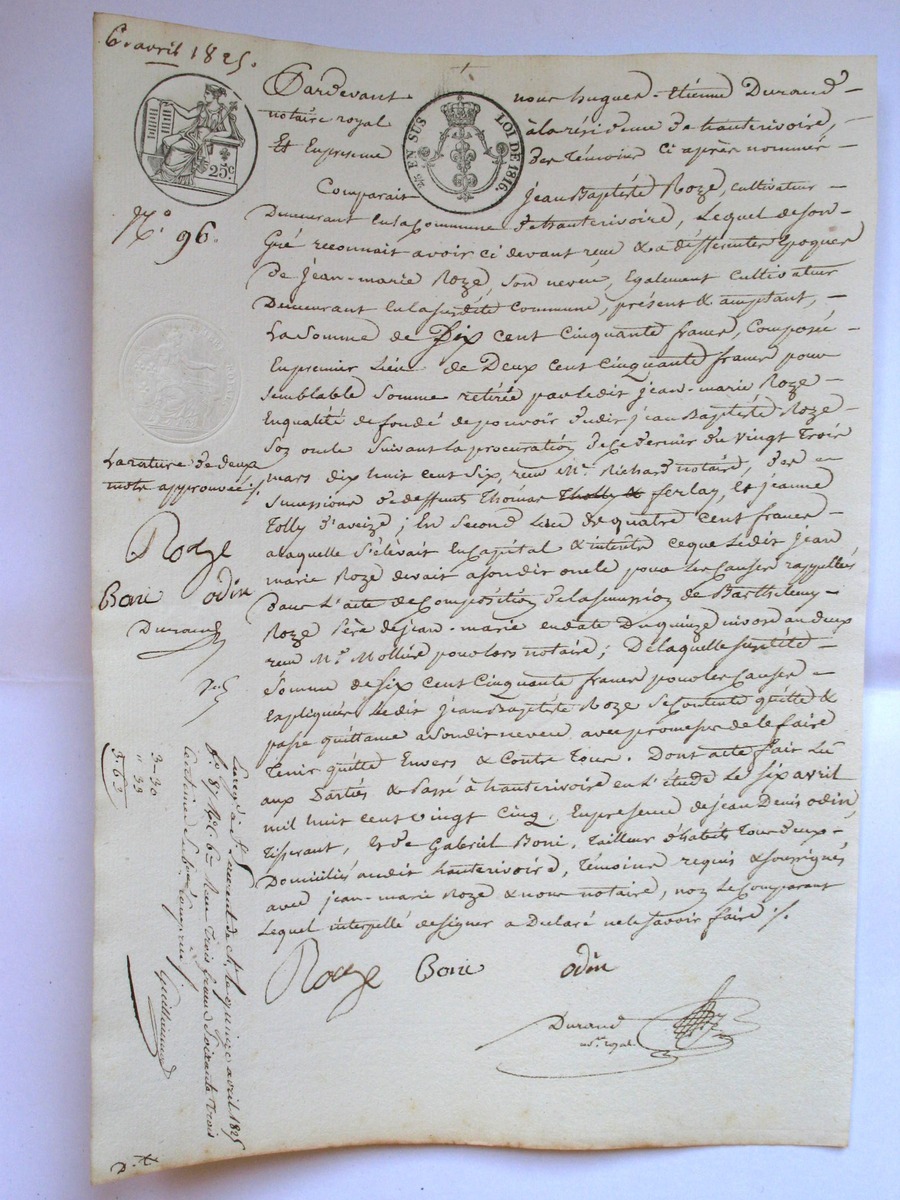 6. avril 1825.
25c
¼ EN SUS LOI DE 1816.
No. 96.
Pardevant nous hugues-Etienne Durand
notaire royal à la résidence de hauterivoire,
Et En presence des Témoins ci après nommés
Comparait Jean Baptiste Roze, cultivateur
Demeurant En la Commune d'hauterivoire, Lequel de son
Gré reconnait avoir ci devant reçu & a différentes Epoques
De Jean-marie Roze, Son neveu, Egalement cultivateur
Demeurant En la susdite Commune, présent & acceptant,
La Somme de Six cent cinquante francs, Composée
En premier Lieu de Deux cent cinquante francs pour
Semblable Somme retirée par ledit Jean-marie Roze
En qualité de fondé de pouvoir dudit Jean Baptiste Roze
Son oncle Suivant la procuration de ce dernier du vingt Trois
mars dix huit cent Six, reçu Me. Richard notaire, des
successions de deffunts Thomas ferlay, & Jeanne
Tolly d'aveize; En Second Lieu de quatre cent francs
a laquelle S'élevait En Capital & intérêts ce que Ledit Jean
marie Roze devait a son dit oncle pour les Causes rappellées
Dans L'acte de Composition de la succession de Barthelemy
Roze père de Jean-marie en date Du quinze nivose an deux
reçu Me. Mollière pour lors notaire; De laquelle susdite
Somme de Six cent Cinquante francs pour les Causes
Expliquées Ledit Jean Baptiste Roze Se Contente quitte &
passe quittance a son dit neveu avec promesse de le faire
Tenir quitte Envers & Contre Tous. Dont acte fait Lu
aux Parties & Passé à hauterivoire en L'étude Le Six avril
mil huit cent vingt Cinq, En presence de Jean Denis odin,
Tisserant, & de Gabriel Boni, Tailleur d'habits Tous deux
Domiciliés audit hauterivoire, Témoins requis & soussignés
avec Jean-marie Roze & nous notaire, non Le Comparant
Lequel interpellé de signer a Déclaré ne le Savoir faire ./.
Rooze Boni odin
Durand
no.re royal.
La rature de deux
mots approuvée ./.
Rooze
Boni odin
Durand
3-30
" 33
3.63
Enreg. à St. Laurent de Ch. le quinze avril 1825
fo. 81 Reçu Trois francs Soixante Trois
centimes